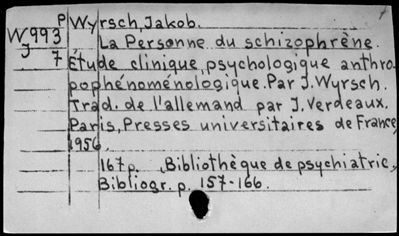 P Wyrsch, Jakob.
W993 La Personne du schizophrène.
J 7 Étude clinique, psychologique anthro
pophénoménologique. Par J. Wyrsch.
Trad. de l'allemand par J. Verdeaux.
Paris, Presses universitaires de France,
1956
167p. (Bibliothèque de psychiatric,
Bibliogr. p. 157-166.